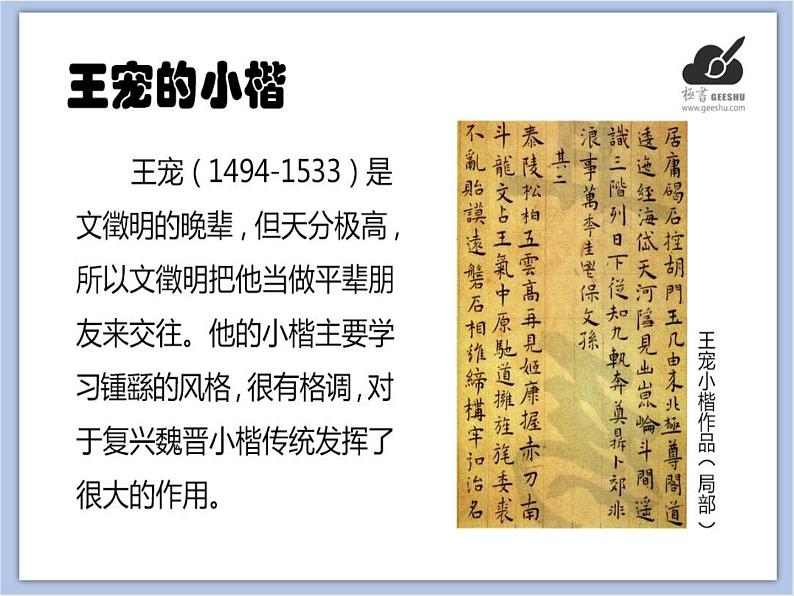 王宠的小楷
極書 GEESHU
www.geeshu.com
王宠（1494-1533）是
文徵明的晚辈，但天分极高，
所以文徵明把他当做平辈朋
友来交往。他的小楷主要学
习锺繇的风格，很有格调，对
于复兴魏晋小楷传统发挥了
很大的作用。
居庸碣石控胡門玉几由来北極尊閣道
逶迤經海岱天河隱見出崑崙斗間遥
識三階列日下從知九軌奔奠鼎卜郊非
浪事萬年圭鬯保文孫
其二
泰陵松柏五雲高再見姬康握赤刀南
斗龍文占王氣中原馳道擁旌旄委裘
不亂貽謨遠磐石相維締構牢如治名
王宠小楷作品（局部）